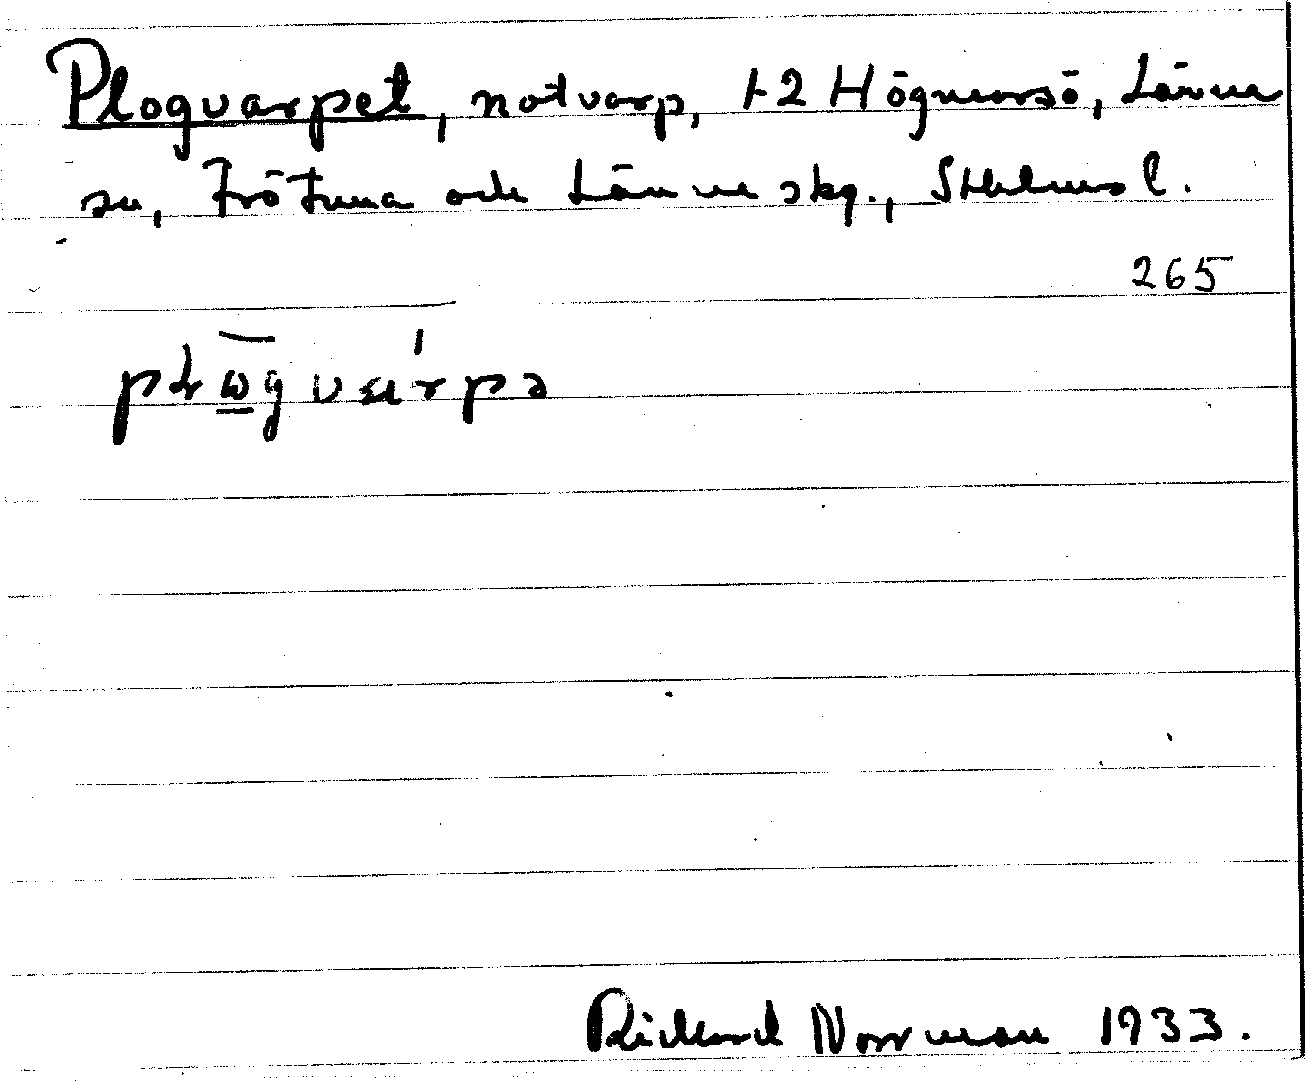 Plogvarpet, notvarp, t2 Högmarsö, Länna
sn, Frötuna och Länna skg., Sthlms l.
265
Richard Norrman 1933.